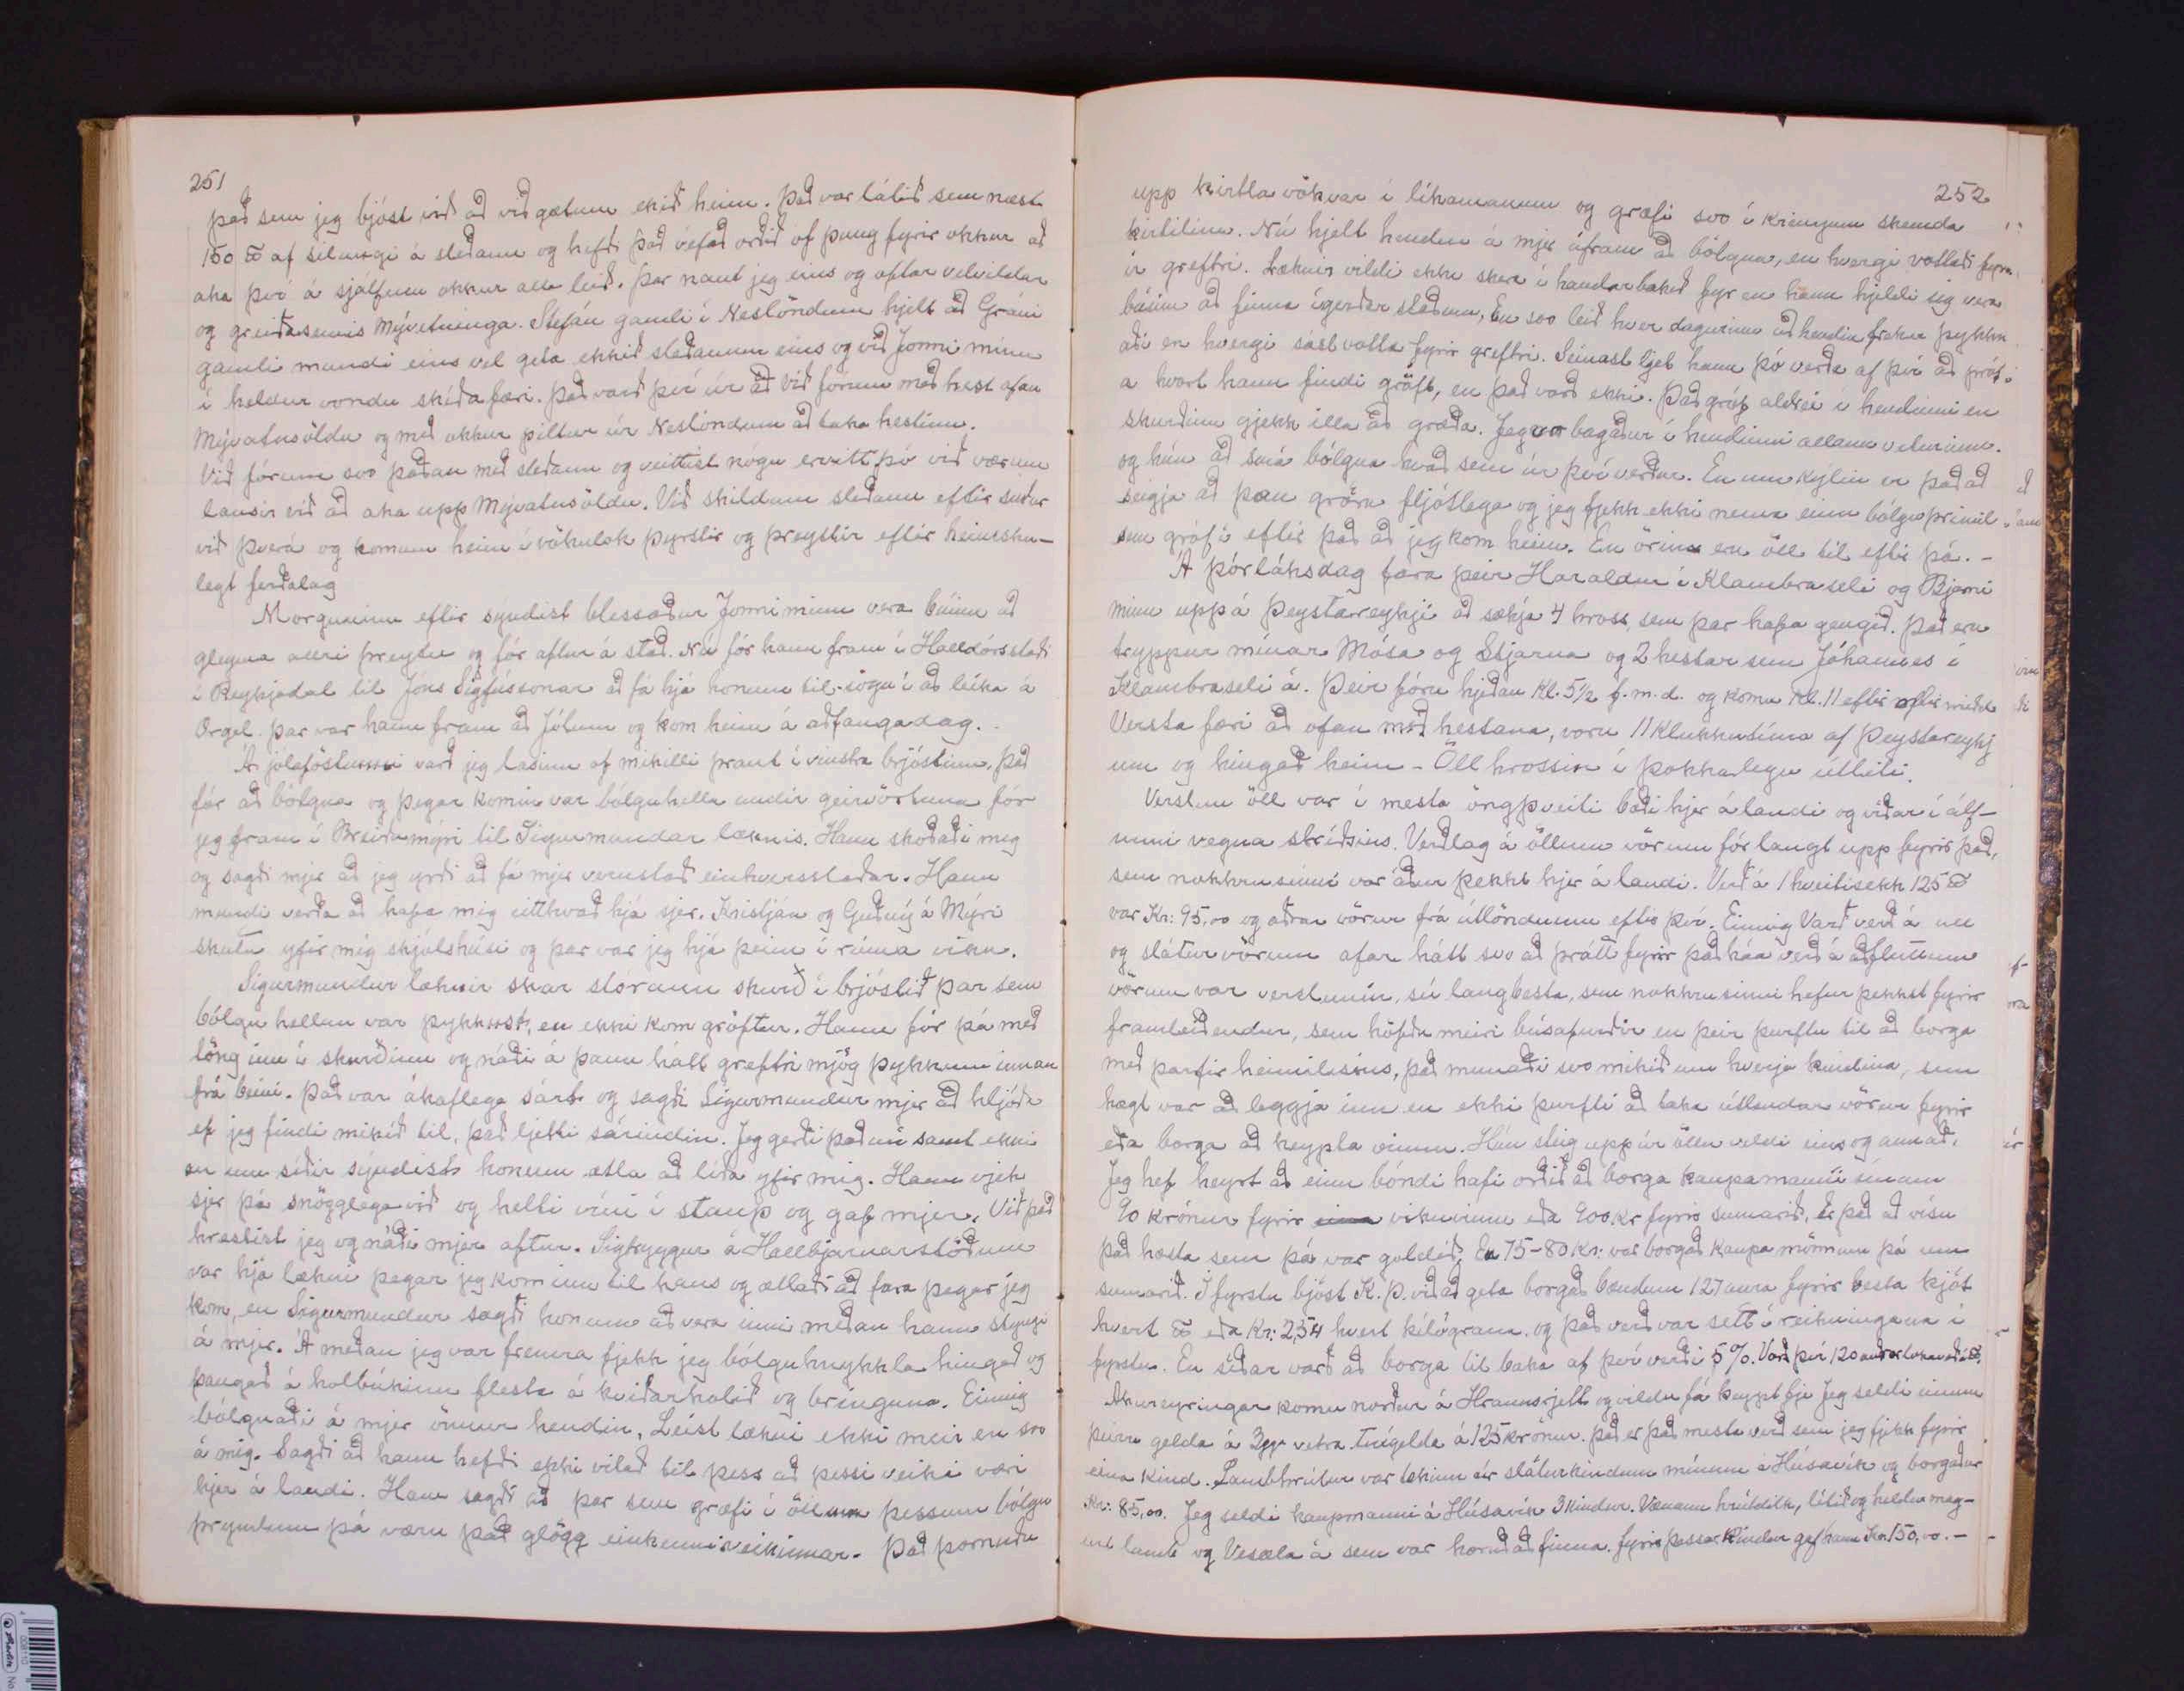 251
það sem jeg bjóst við að við gætum ekið heim. Það var látið sem næst
150 ℔ af silungi á sleðann og hefði það vafað orðið of þung fyrir okkur að
aka því á sjálfum okkur alla leið. Þar naut jeg eins og oftar velvildar
og greiðasemis Mývetninga. Stefán gamli í Neslöndum hjelt að Gráni
gamli mundi eins vel geta ekkið sleðanum eins og við Jonni minn
í heldur vondu skíðafæri. Það varð því úr að við fórum með hest ofan
Mývatnsöldu og með okkur piltur úr Neslöndum að taka hestinn.
Við fórum svo þaðan með sleðann og veittist nógu ervitt þó við værum
lausir við að aka upp Mývatnsöldu. Við skildum sleðann eftir suður
við Þverá og komum heim í vökulok þyrstir og þreyttir eftir heimsku-
legt ferðalag
Morguninn eftir syndist blessaður Jonni minn vera búinn að
gleyma allri þreytu og fór aftur á stað. Nú fór hann fram í Halldórsstaði
í Reykjadal til Jóns Sigfússonar að fá hjá honum til-sögn í að leika á
Orgel. Þar var hann fram að Jólum og kom heim á aðfangadag.
Á jólaföstunni varð jeg lasinn af mikilli þraut í vinstra brjóstinu. Það
fór að bólgna og þegar komin var bólguhella undir geirvörtuna fór
jeg fram í Breiðumýri til Sigurmundar læknis. Hann skoðaði mig
og sagði mjer að jeg yrði að fá mjer verustað einhversstaðar. Hann
mundi verða að hafa mig eitthvað hjá sjer. Kristján og Guðný á Mýri
skutu yfir mig skjólshúsi og þar var jeg hjá þeim í rúma viku.
Sigurmundur læknir skar stórann skurð í brjóstið þar sem
bólgu hellan var þykkust, en ekki kom gröftur. Hann fór þá með
töng inn í skurðinn og náði á þann hátt greftri mjög þykkum innan
frá beini. Það var ákaflega sárt og sagði Sigurmundur mjer að hljóða
ef jeg findi mikið til, það ljetti sárindin. Jeg gerði það nú samt ekki
en um síðir sýndist honum ætla að líða yfir mig. Hann vjek
sjer þá snögglega við og hellti víni í staup og gaf mjer. Við það
hresstist jeg og náði mjer aftur. Sigtryggur á Hallbjarnarstöðum
var hjá lækni þegar jeg kom inn til hans og ætlaði að fara þegar jeg
kom, en Sigurmundur sagði honum að vera inni meðan hann styngi
á mjer. Á meðan jeg var fremra fjekk jeg bólguhnykkla hingað og
þangað á holbúkinn flesta á kviðarholið og bringuna. Einnig
bólgnaði á mjer önnur hendin, Leist lækni ekki meir en svo
á mig. Sagði að hann hefði ekki vitað til þess að þessi veiki væri
hjer á landi. Hann sagði að þar sem græfi í öllum þessum bólgu
þrymlum þá væru það glögg einkenni veikinnar. Það þornuðu
252
upp kirtla vökvar í líkamanum og græfi svo í kringum skemda
kirtilinn. Nú hjelt hendin á mjer áfram að bólgna, en hvergi vottaði fyrir
ír greftri. Læknir vildi ekki skera í handarbakið fyr en hann hjeldi sig vera
búinn að finna ígerðar staðinn, En svo leið hver dagurinn að hendin frekar þykkn
aði en hvergi sást votta fyrir greftri. Seinast ljet hann þó verða af því að próf-
a hvort hann findi gröft, en það varð ekki. Það gróf aldrei í hendinni en
skurðinn gjekk illa að græða. Jeg var bagaður í hendinni allann veturinn.
og hún að smá bólgna hvað sem úr því verður. En um kýlin er það að
seigja að þau gröru fljótlega og jeg fjekk ekki nema einn bólguþrimil
sem gróf í eftir það að jeg kom heim. En örin eru öll til eftir þá. -
Á Þórláksdag fóra þeir Haraldur í Klambraseli og Bjarni
minn uppá Þeystareykji að sækja 4 hross, sem þar hafa gengið. Það eru
tryppur mínar Mósa og Stjarna og 2 hestar sem Jóhannes í
Klambraseli á. Þeir fóru hjeðan Kl. 5½ f.m.d. og komu Kl. 11 eftir miðd
Versta færi að ofan með hestana, voru 11 Klukkutíma af Þeystareykj
um og hingað heim - Öll hrossin í þokkalegu útliti.
Verslun öll var í mesta öngþveiti bæði hjer á landi og víðar í álf-
unni vegna stríðsins. Verðlag á öllum vörum fór langt upp fyrir það,
sem nokkru sinni var áður þekkt hjer á landi. Verð á 1 hveitisekk 125 ℔
var Kr: 95,00 og aðrar vörur frá útlöndum eftir því. Einnig Varð verð á ull
og slátur vörum afar hátt svo að þrátt fyrir það háa verð á aðfluttum
vörum var verslunin, sú langbesta, sem nokkru sinni hefur þekkst fyrir
framleiðendur, sem höfðu meiri búsafurðir en þeir þurftu til að borga
með þarfir heimilisins, það munaði svo mikið um hverja kindina, sem
hægt var að leggja inn en ekki þurfti að taka útlendar vörur fyrir
eða borga að keypta vinnu. Hún steig upp úr öllu veldi eins og annað.
Jeg hef heyrt að einn bóndi hafi orðið að borga kaupamanni sínum
90 krónur fyrir vikuvinnu eða 900 kr fyrir sumarið, Er það að vísu
það hæsta sem þá var goldið, En 75-80 kr: var borgað kaupamönnum þá um
sumarið. Í fyrstu bjóst K.Þ. við að geta borgað bændum 127 aura fyrir besta kjöt
hvert ℔ eða Kr: 2,54 hvert kílógram. og það verð var sett í reikningana í
fyrstu. En síðar varð að borga til baka af því verði 5%. Varð því 120
Akureyringar komu norður á Hraunsrjett og vildu fá keypt fje Jeg seldi einum
þeirra gelda á 3gja vetra tvígelda á 125 krónur. Það er það mesta verð sem jeg fjekk fyrir
eina kind. Lambhrútur var tekinn úr sláturkindum mínum á Húsavík og borgaður
Kr: 85,00. Jeg seldi kaupmanni á Húsavík 3 kindur. Vænann hrútdilk, lítið og heldur mag-
urt lamb og Vesæla á sem var hornð að finna. fyrir þessar Kindur gaf hann Kr. 150,00. -